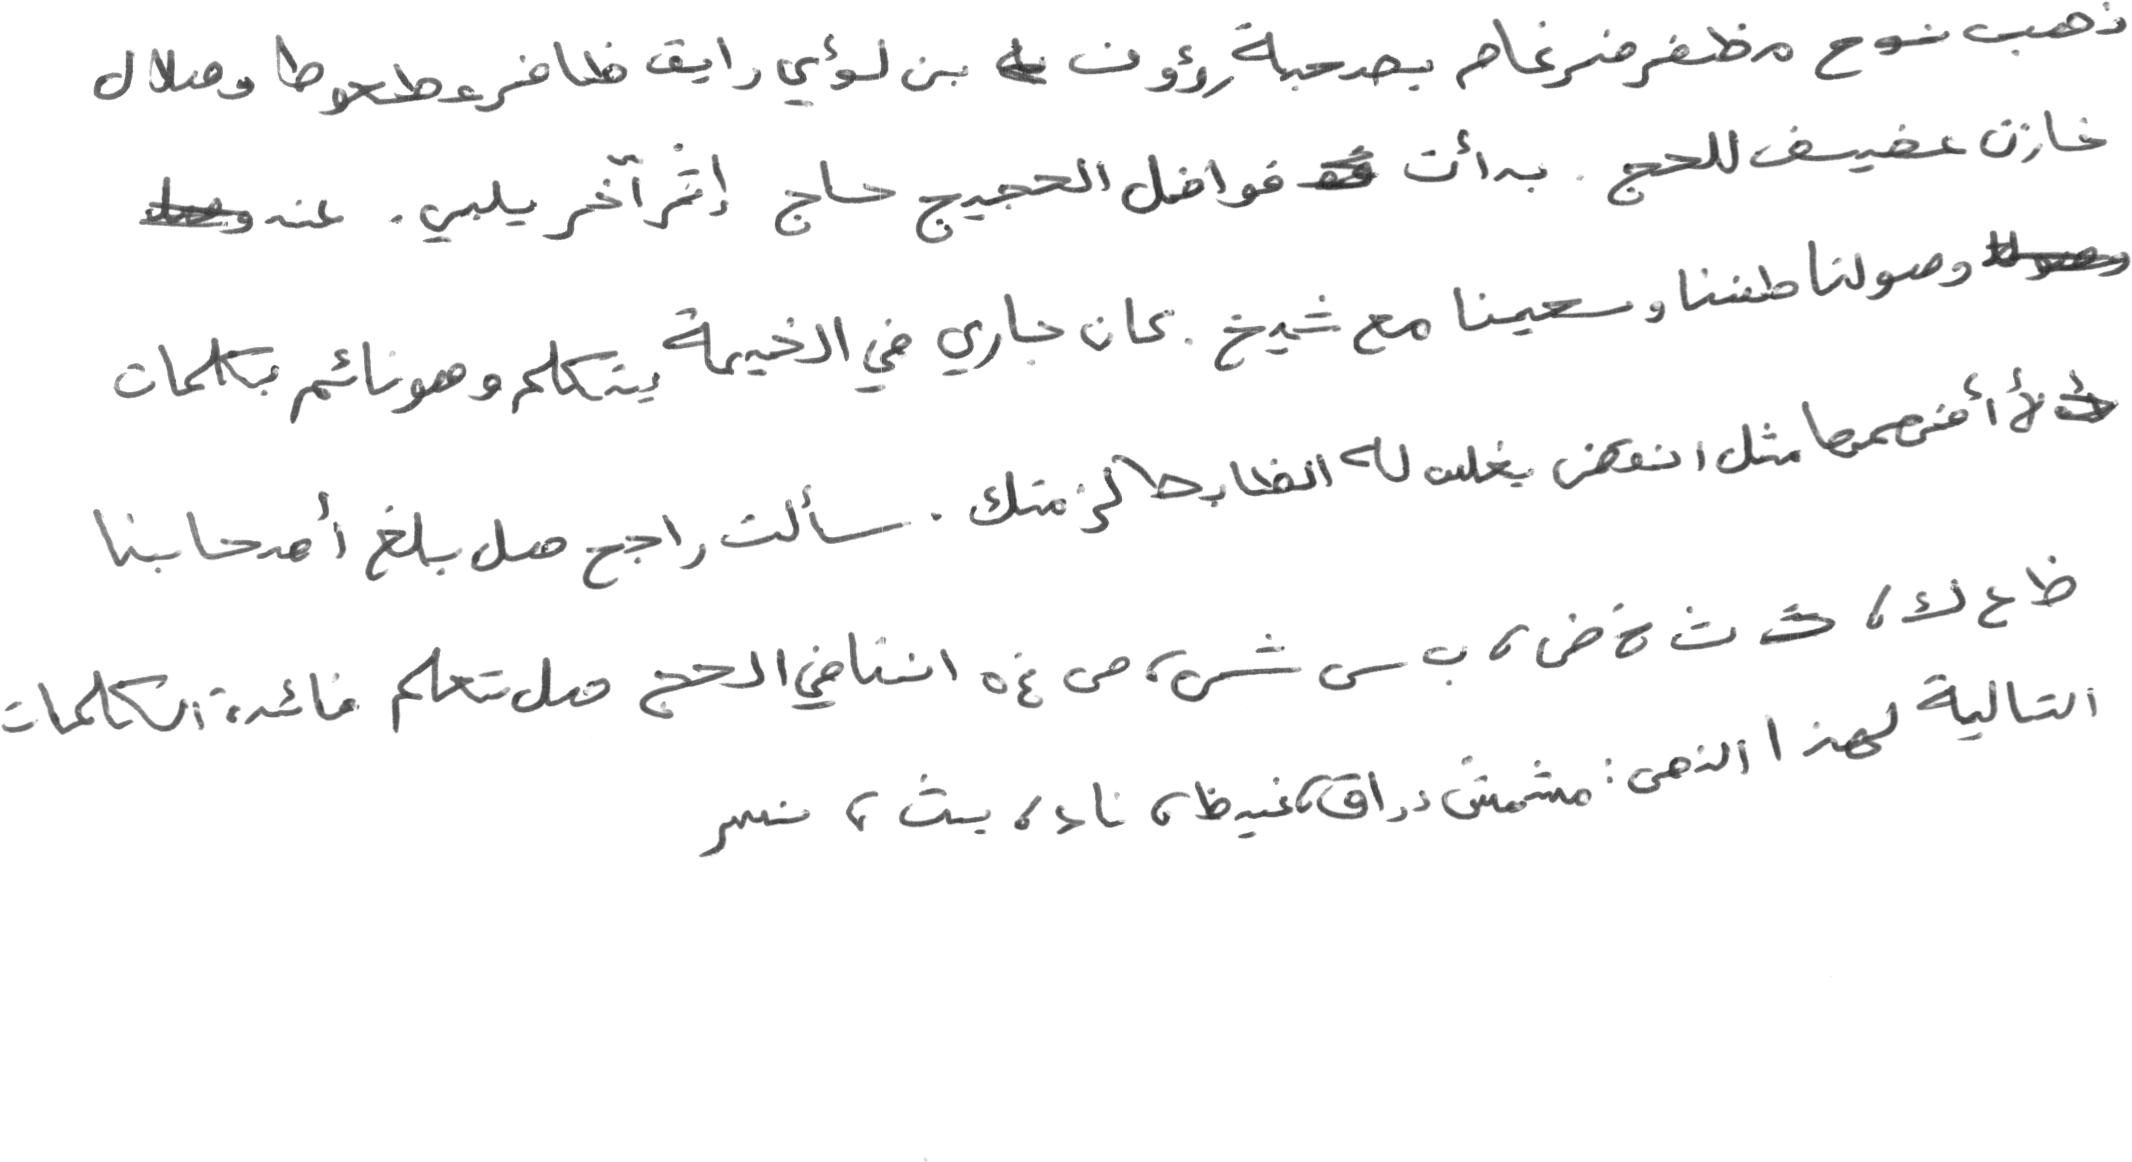 ذهب نوح مظفر ضرغام بصحبة رؤوف بن لؤي رايق ظافر عطعوط وهلال
خازن عفيف للحج. بدأت قوافل الحجيج حاج إثر آخر يلبي. عند
وصولنا طفنا وسعينا مع شيخ. كان جاري في الخيمة يتكلم وهو نائم بكلمات
لا أفهمها مثل انفض يغلس له الظابط لزمتك. سألت راجح هل بلغ أصحابنا
ظ ح ك، ث ة ض، ب س ش، ص غ ه اننا في الحج هل تعلم فائدة الكلمات
التالية لهذا النص: مشمش دراق، غيظ، ناد، بث، نسر